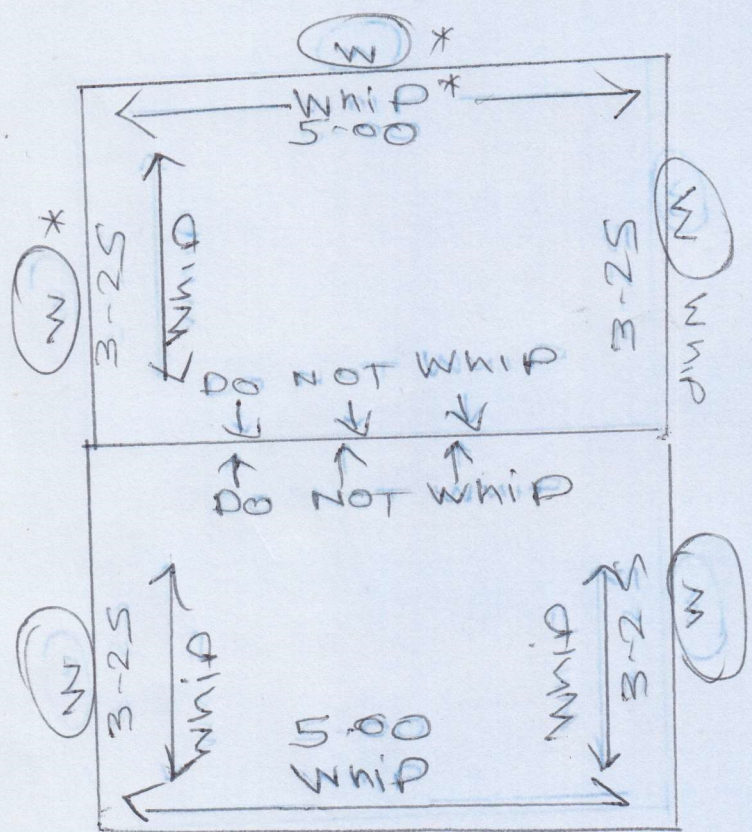 W *
Whip *
5-00
* W
3-25
Whip
3-25
W
Whip
DO NOT WHIP
DO NOT WhiP
W
3-25
Whip
Whip
3-25
W
5-00
Whip